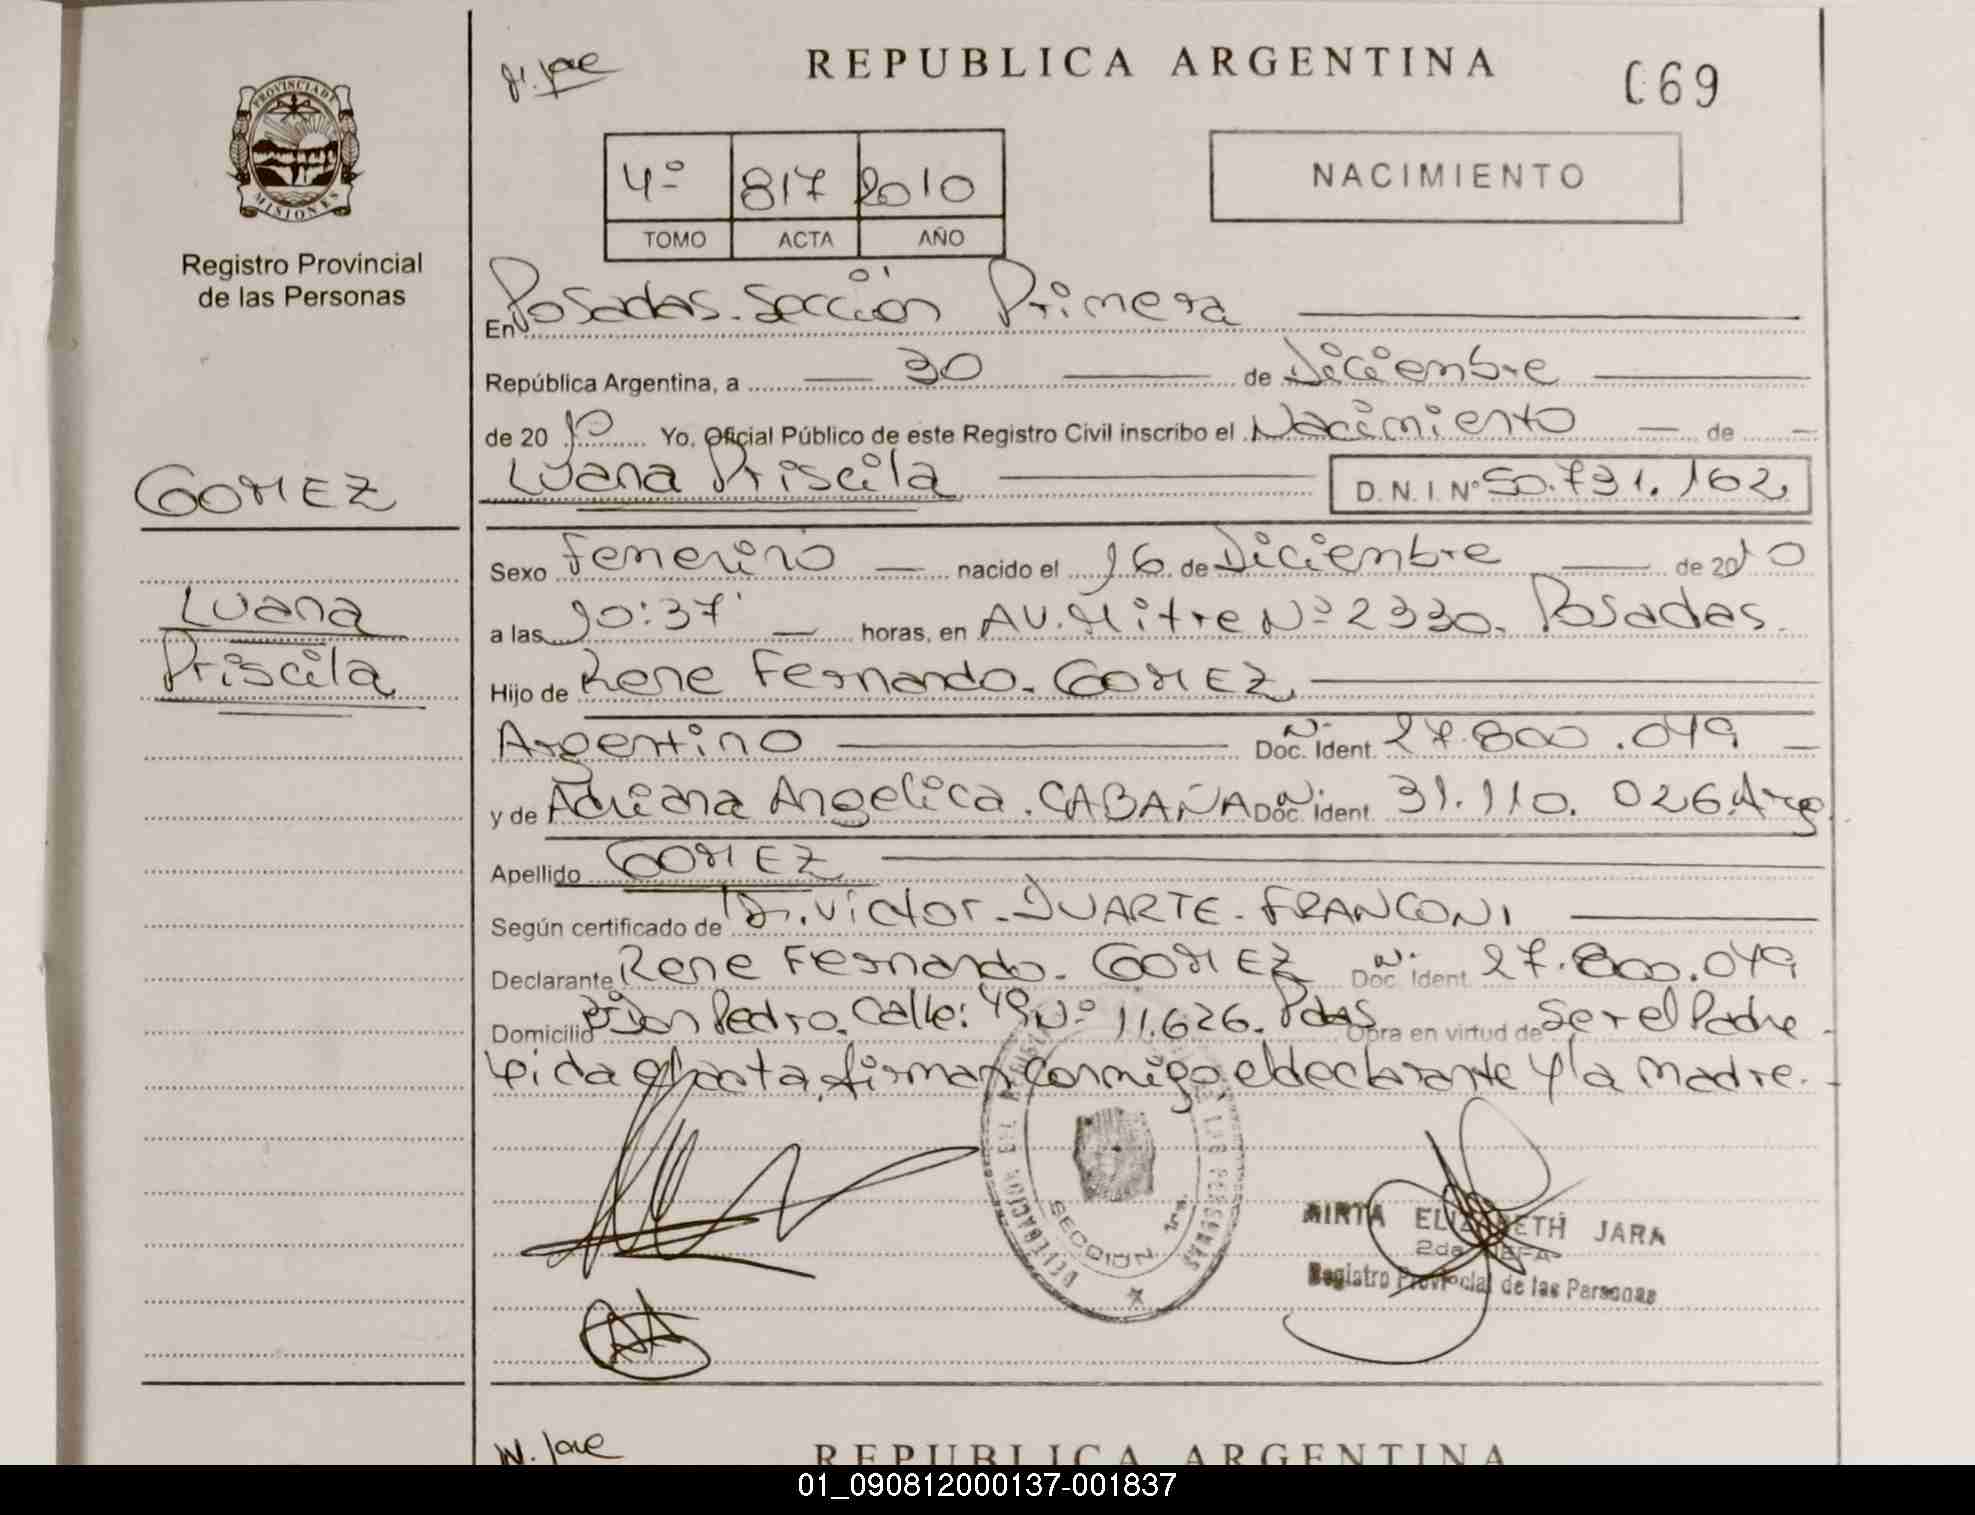 REPUBLICA ARGENTINA
069
PROVINCIA DE
MISIONES
Registro Provincial
de las Personas
4º 817 2010
TOMO ACTA AÑO
NACIMIENTO
En Posadas. Sección Primera
República Argentina, a 30 de Diciembre
de 2010 Yo, Oficial Público de este Registro Civil inscribo el Nacimiento de
Luana Priscila D.N.I. Nº 50.731.162
GOMEZ
Luana
Priscila
Sexo Femenino nacido el 16 de Diciembre de 2010
a las 10:37' horas, en AV. Mitre Nº 2330. Posadas.
Hijo de Rene Fernando. GOMEZ
Argentino Doc. Ident. Nº 27.800.049
y de Adriana Angelica. CABAÑA Doc. Ident. Nº 31.110.026 Arg
Apellido GOMEZ
Según certificado de Dr. Victor. DUARTE. FRANCONI
Declarante Rene Fernando. GOMEZ Doc. Ident. Nº 27.800.049
Domicilio Bº Don Pedro. Calle: 49 Nº 11.626. Pdas Obra en virtud de Ser el Padre
Leida el acta, firman conmigo el declarante y la madre.
SECCION 1ra
MIRTA ELIZABETH JARA
2da JEFA
Registro Provincial de las Personas
REPUBLICA ARGENTINA
01_090812000137-001837